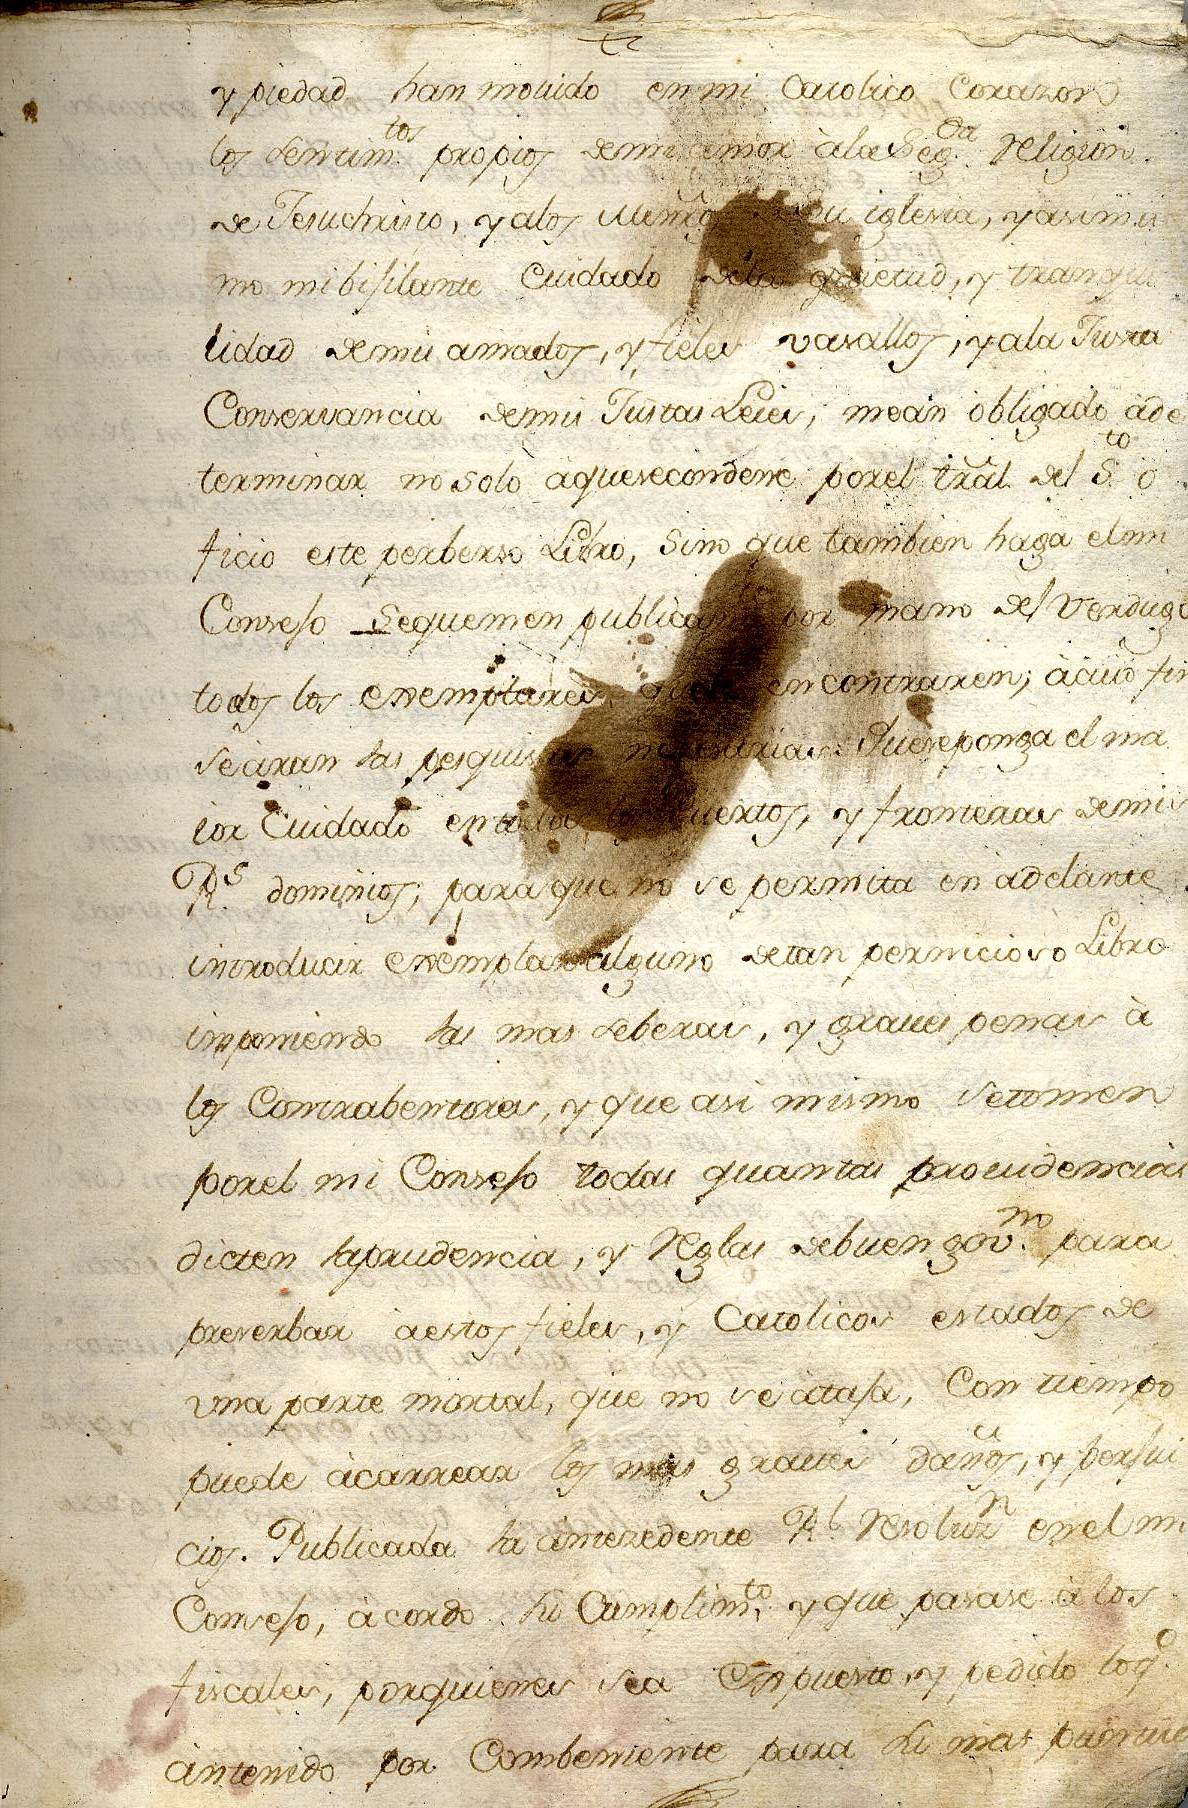 y piedad han mouido en mi Catolico Corazon
los sentim.tos propios de mi amor à la Seg.da Religion
de Jesuchristo, y alos de su iglesia, y asimis
mo mi bijilante Cuidado dela quietud, y tranqui
lidad demis amados, y fieles vasallos, y ala Justa
Conservancia demis Justas Leies, mean obligado àde
terminar no solo àquesecondene porel tràl. del S.to o
ficio este perberso Libro, Sino que tambien haga elmi
Consejo sequemen publicam.te por mano del Verdugo
todos los exsemplares quese encontraren; àcuio fin
seàran las pesquisas nesesarias. Queseponga el ma
ior Cuidado entodos los Puertos, y fronteras demis
R.s dominios; para que no se permita en adelante
introducir exsemplar alguno detan pernicioso Libro
imponiendo las mas seberas, y graues penas à
los Contrabentores, y que asi mismo setomen
porel mi Consejo todas quantas prouidencias
dicten laprudencia, y Reglas debuen gov.no para
preserbar àestos fieles, y Catolicos estados de
una parte mortal, que no se àtaja, Con tiempo
puede àcarrear los mas graues daños, y perjui
cios. Publicada la àntezedente R.l Resoluz.n enel mi
Consejo, àcordo su Cumplim.to, y que pasase à los
fiscales, porquienes sea Expuesto, y pedido loq.e
àntenido por Combeniente para su mas puntue